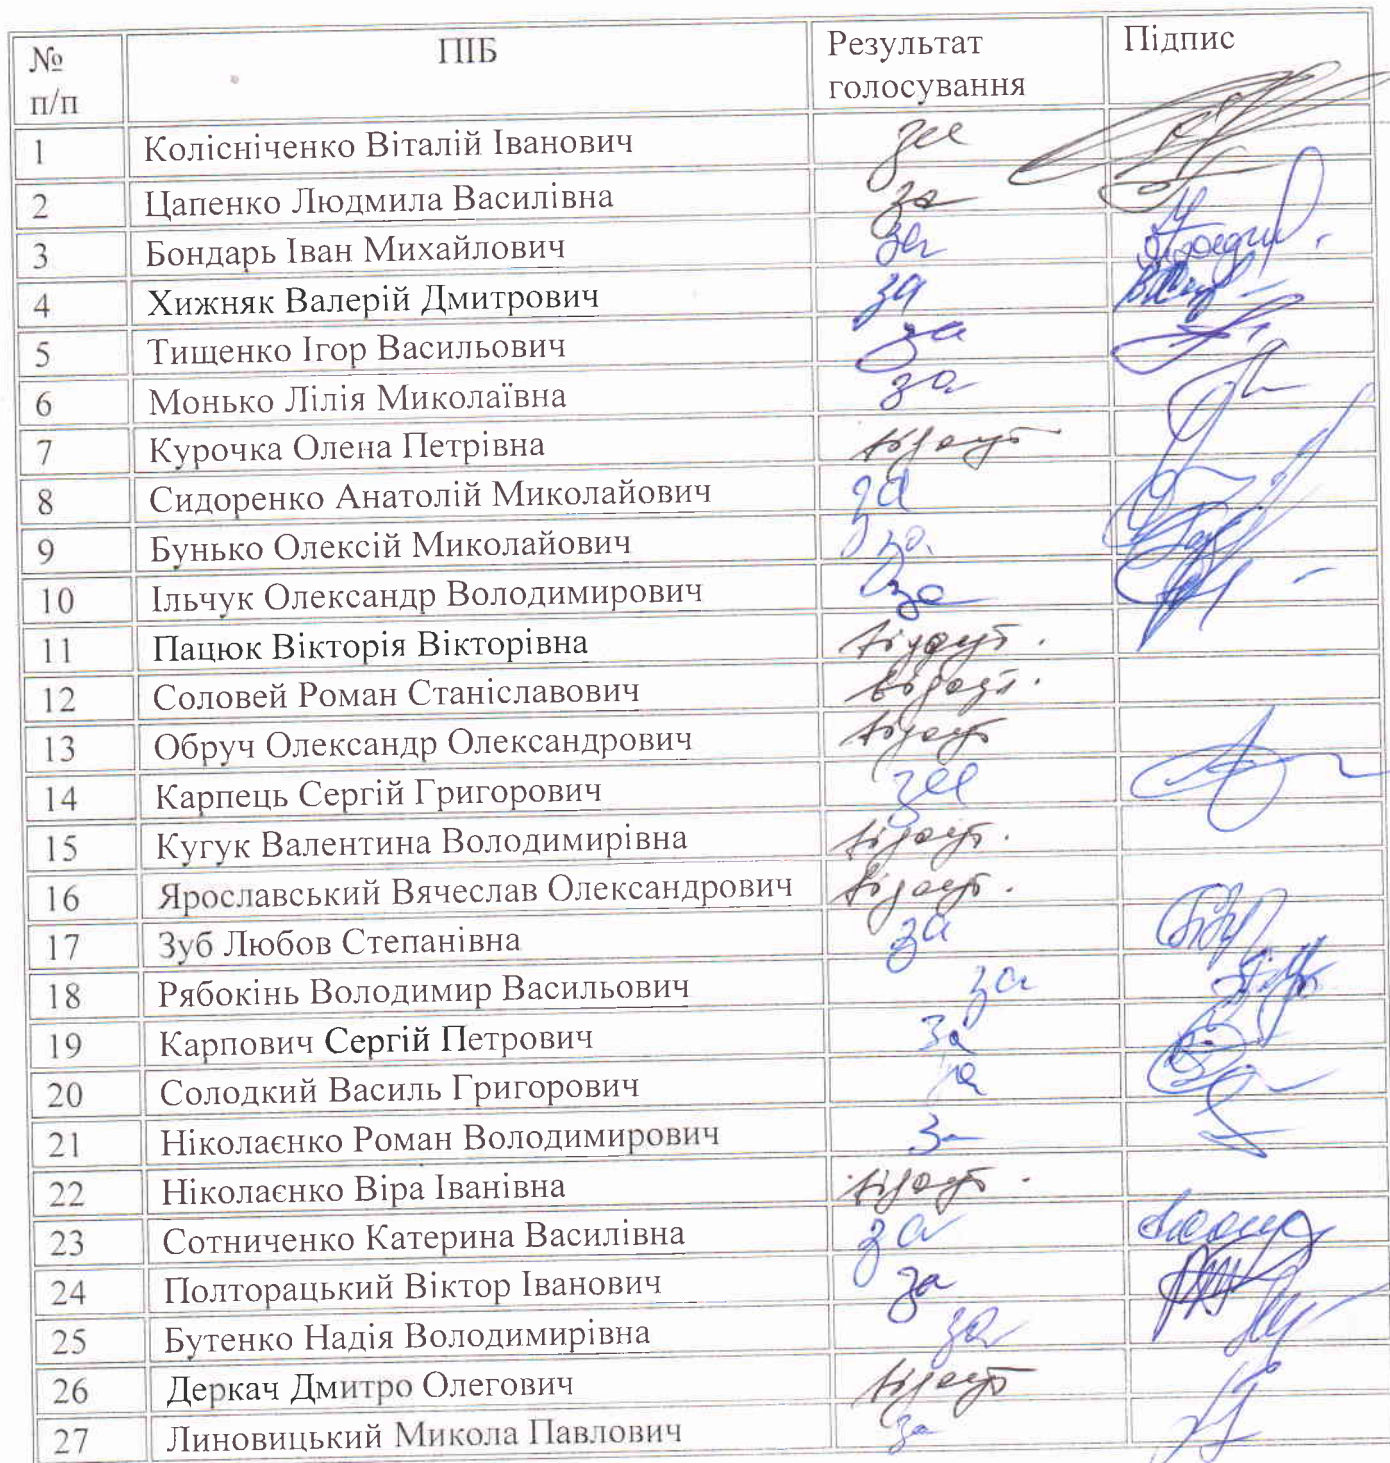 № п/п ПІБ Результат голосування Підпис
1 Колісніченко Віталій Іванович за
2 Цапенко Людмила Василівна за
3 Бондарь Іван Михайлович за
4 Хижняк Валерій Дмитрович за
5 Тищенко Ігор Васильович за
6 Монько Лілія Миколаївна за
7 Курочка Олена Петрівна відсут
8 Сидоренко Анатолій Миколайович за
9 Бунько Олексій Миколайович за.
10 Ільчук Олександр Володимирович за
11 Пацюк Вікторія Вікторівна відсут.
12 Соловей Роман Станіславович відсут.
13 Обруч Олександр Олександрович відсут
14 Карпець Сергій Григорович за
15 Кугук Валентина Володимирівна відсут.
16 Ярославський Вячеслав Олександрович відсут.
17 Зуб Любов Степанівна за
18 Рябокінь Володимир Васильович за
19 Карпович Сергій Петрович за
20 Солодкий Василь Григорович за
21 Ніколаєнко Роман Володимирович за
22 Ніколаєнко Віра Іванівна відсут.
23 Сотниченко Катерина Василівна за
24 Полторацький Віктор Іванович за
25 Бутенко Надія Володимирівна за
26 Деркач Дмитро Олегович відсут
27 Линовицький Микола Павлович за